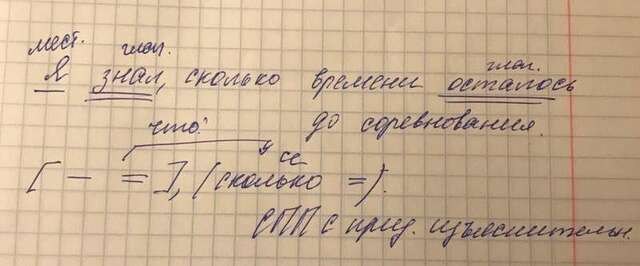 мест. глаг. глаг.
Я знал, сколько времени осталось
до соревнования.
что?
[ — = ], (сколько =).
СПП с прид. изъяснительн.